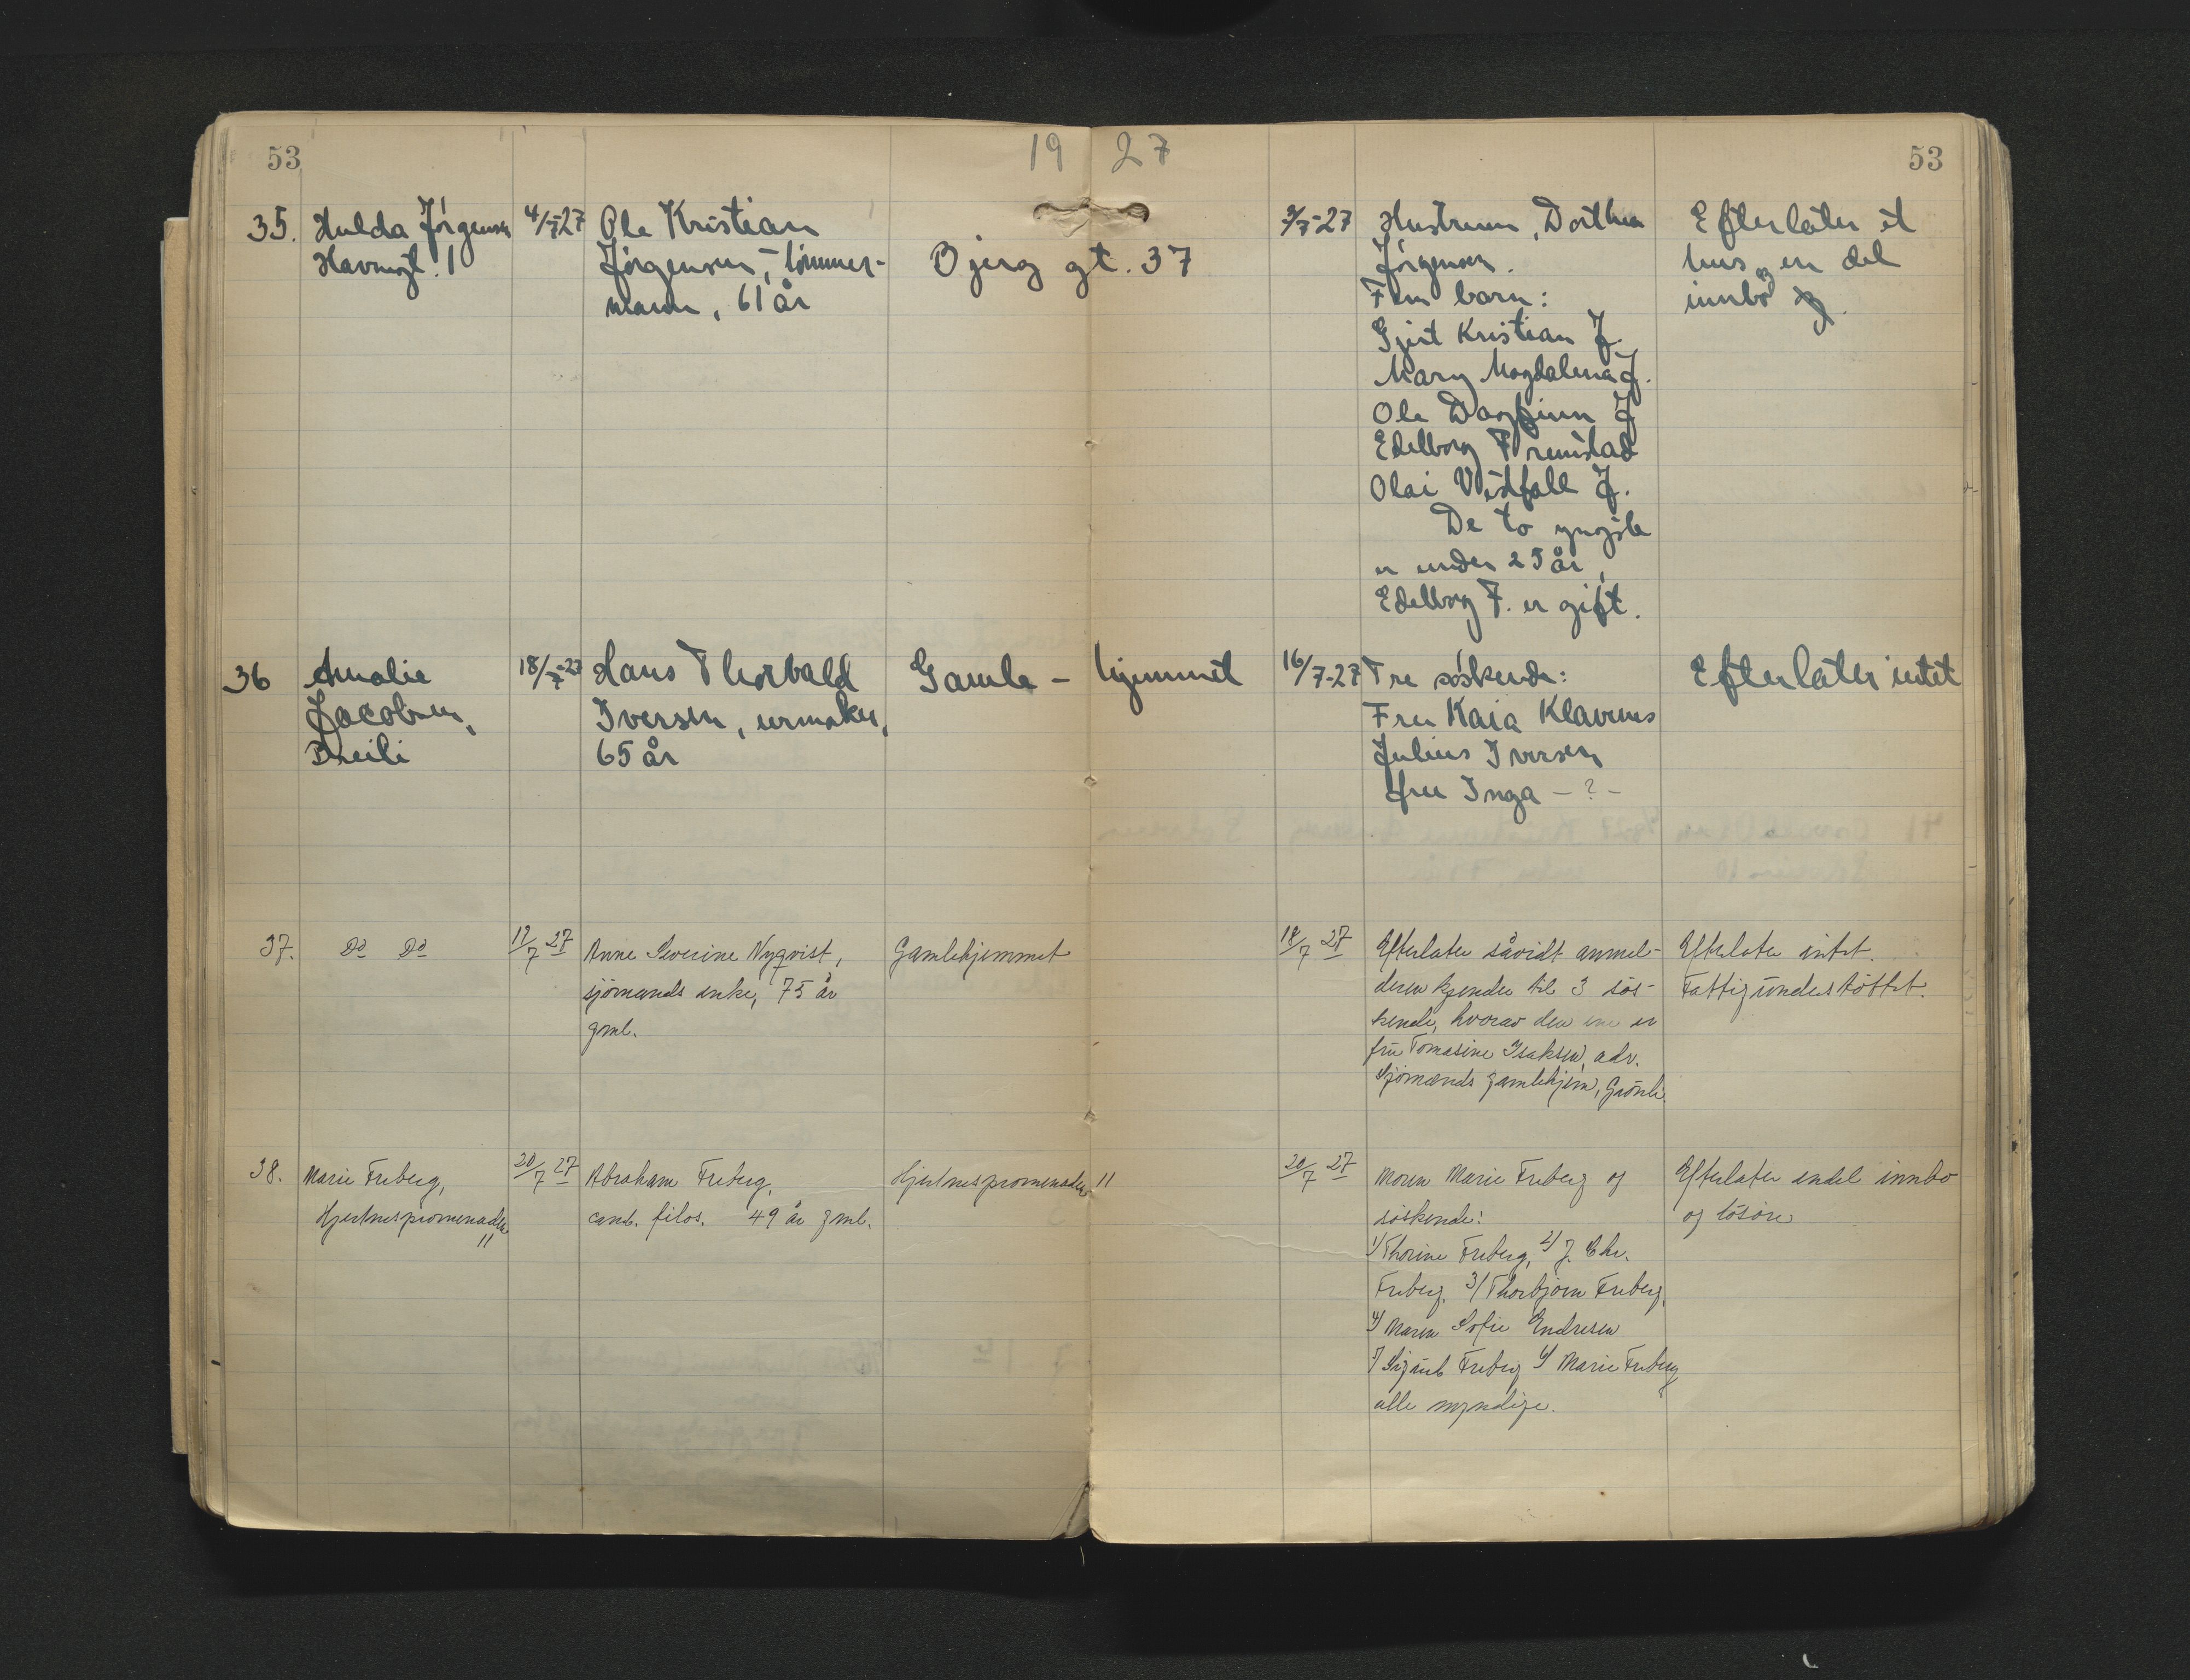 53 19 27 53
35. Hulda Jörgensen 4/7-27 Ole Kristian 3/7-27 Hustruen, Dorthea Efterlater et
Havnegt. 1 Jörgensen, tömmer- Bjerg gt. 37 Jörgensen. hus og en del
mann, 61 år Fem barn: innbo
Gjert Kristian J.
Mary Magdalena J.
Ole Dagfinn J
Edelborg Fremstad
Olai Vestfall J.
De to yngste
er under 25 år,
Edelborg F. er gift.
36 Amalie 18/7-27 Hans Thorvald Gamle- hjemmet 16/7-27 Tre söskende: Efterlater intet
Jacobsen, Iversen, urmaker, Fru Kaia Klavenes
Breili 65 år Julius Iversen
fru Inga - ? -
37. Do Do 27 Anne Severine Nyqvist, Gamlehjemmet 18/7 27 Efterlater såvidt anmel- Efterlater intet.
sjömands enke, 75 år deren kjender til 3 sös- Fattigunderstöttet.
gml. kende, hvorav den ene er
fru Tomasine Isaksen, adr.
Sjömands gamlehjem, Grönli.
38. Marie Friberg, 20/7 27 Abraham Friberg, Hjertnespromenaden 11 20/7 27 Moren Marie Friberg og Efterlater endel innbo
Hjertnespromenaden cand. filos. 49 år gml. söskende: og lösöre
11
1/ Thorine Friberg, 2/ J. Chr.
Friberg, 3/ Thorbjörn Friberg,
4/ Maren Sofie Endresen
Friberg Marie Friberg
alle myndige.